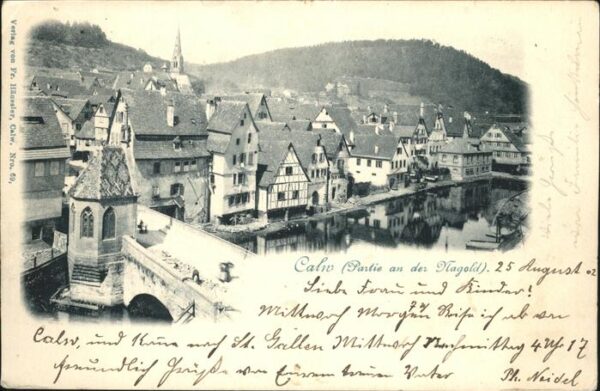 Verlag von Fr. Häussler, Calw. Nro. 69.
Calw (Partie an der Nagold). 25 August 02
Liebe Frau und Kinder!
Mittwoch Morgen 7 Reise ich ab von
Calw, und nach St. Gallen Mittwoch Nachmittag 4 Uhr 17
freundlich Grüße von Eurem treuen Vater
Ph. Neidel